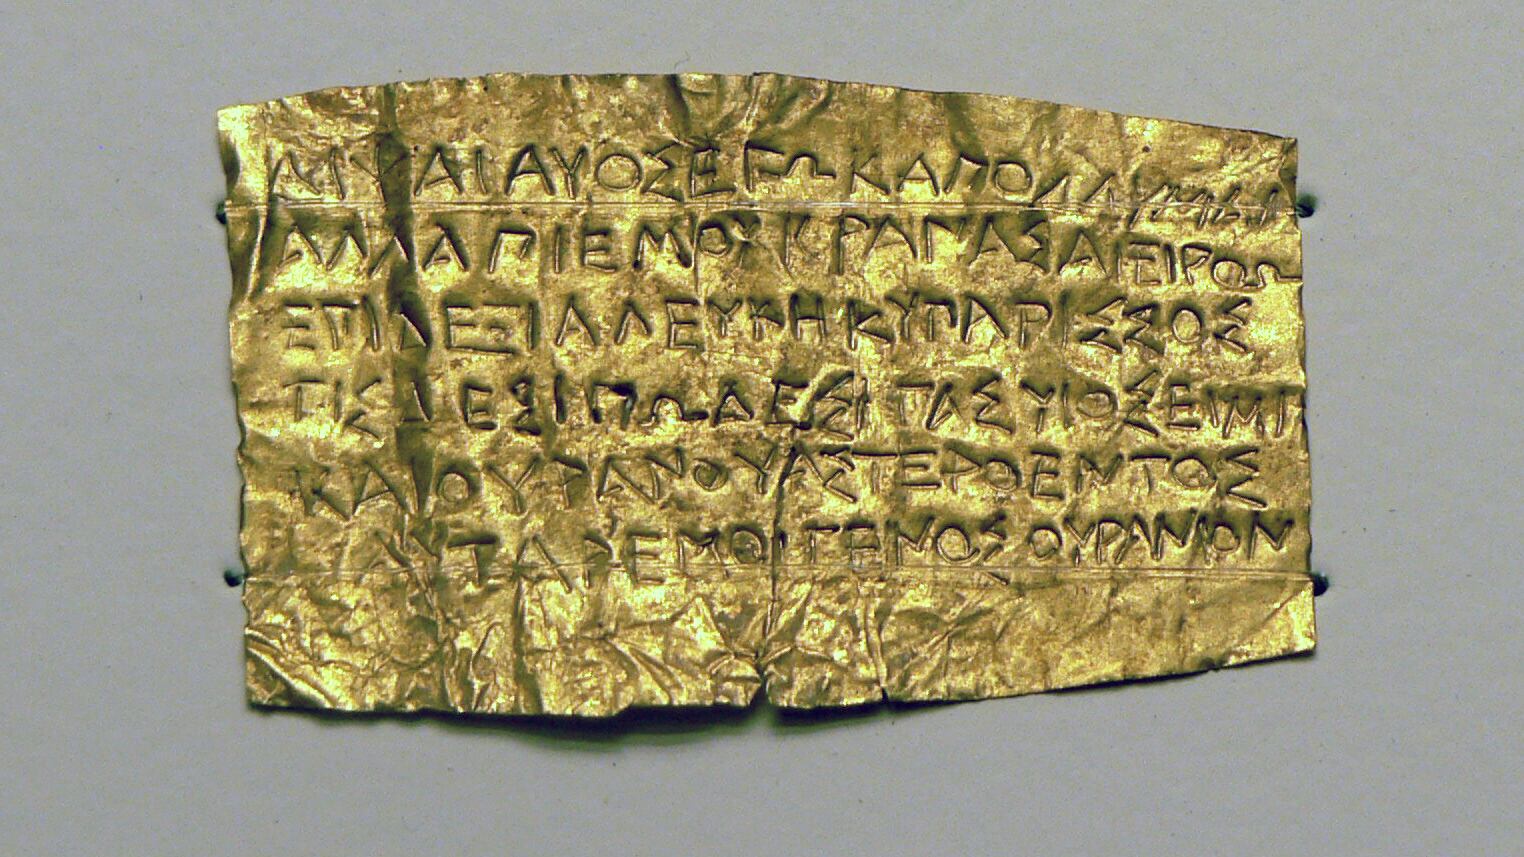 ΔΙΨΑΙΑΥΟΣΕΓΩΚΑΠΟΛΛΥΜΑΙ
ΑΛΛΑΠΙΕΜΟΥΚΡΑΝΑΣΑΙΕΙΡΩΩ
ΕΠΙΔΕΞΙΑΛΕΥΚΗΚΥΠΑΡΙΣΣΟΣ
ΤΙΣΔΕΣΙΠΩΔΕΣΙΤΑΣΥΙΟΣΕΙΜΙ
ΚΑΙΟΥΡΑΝΟΥΑΣΤΕΡΟΕΝΤΟΣ
ΑΥΤΑΡΕΜΟΙΓΕΝΟΣΟΥΡΑΝΙΟΝ